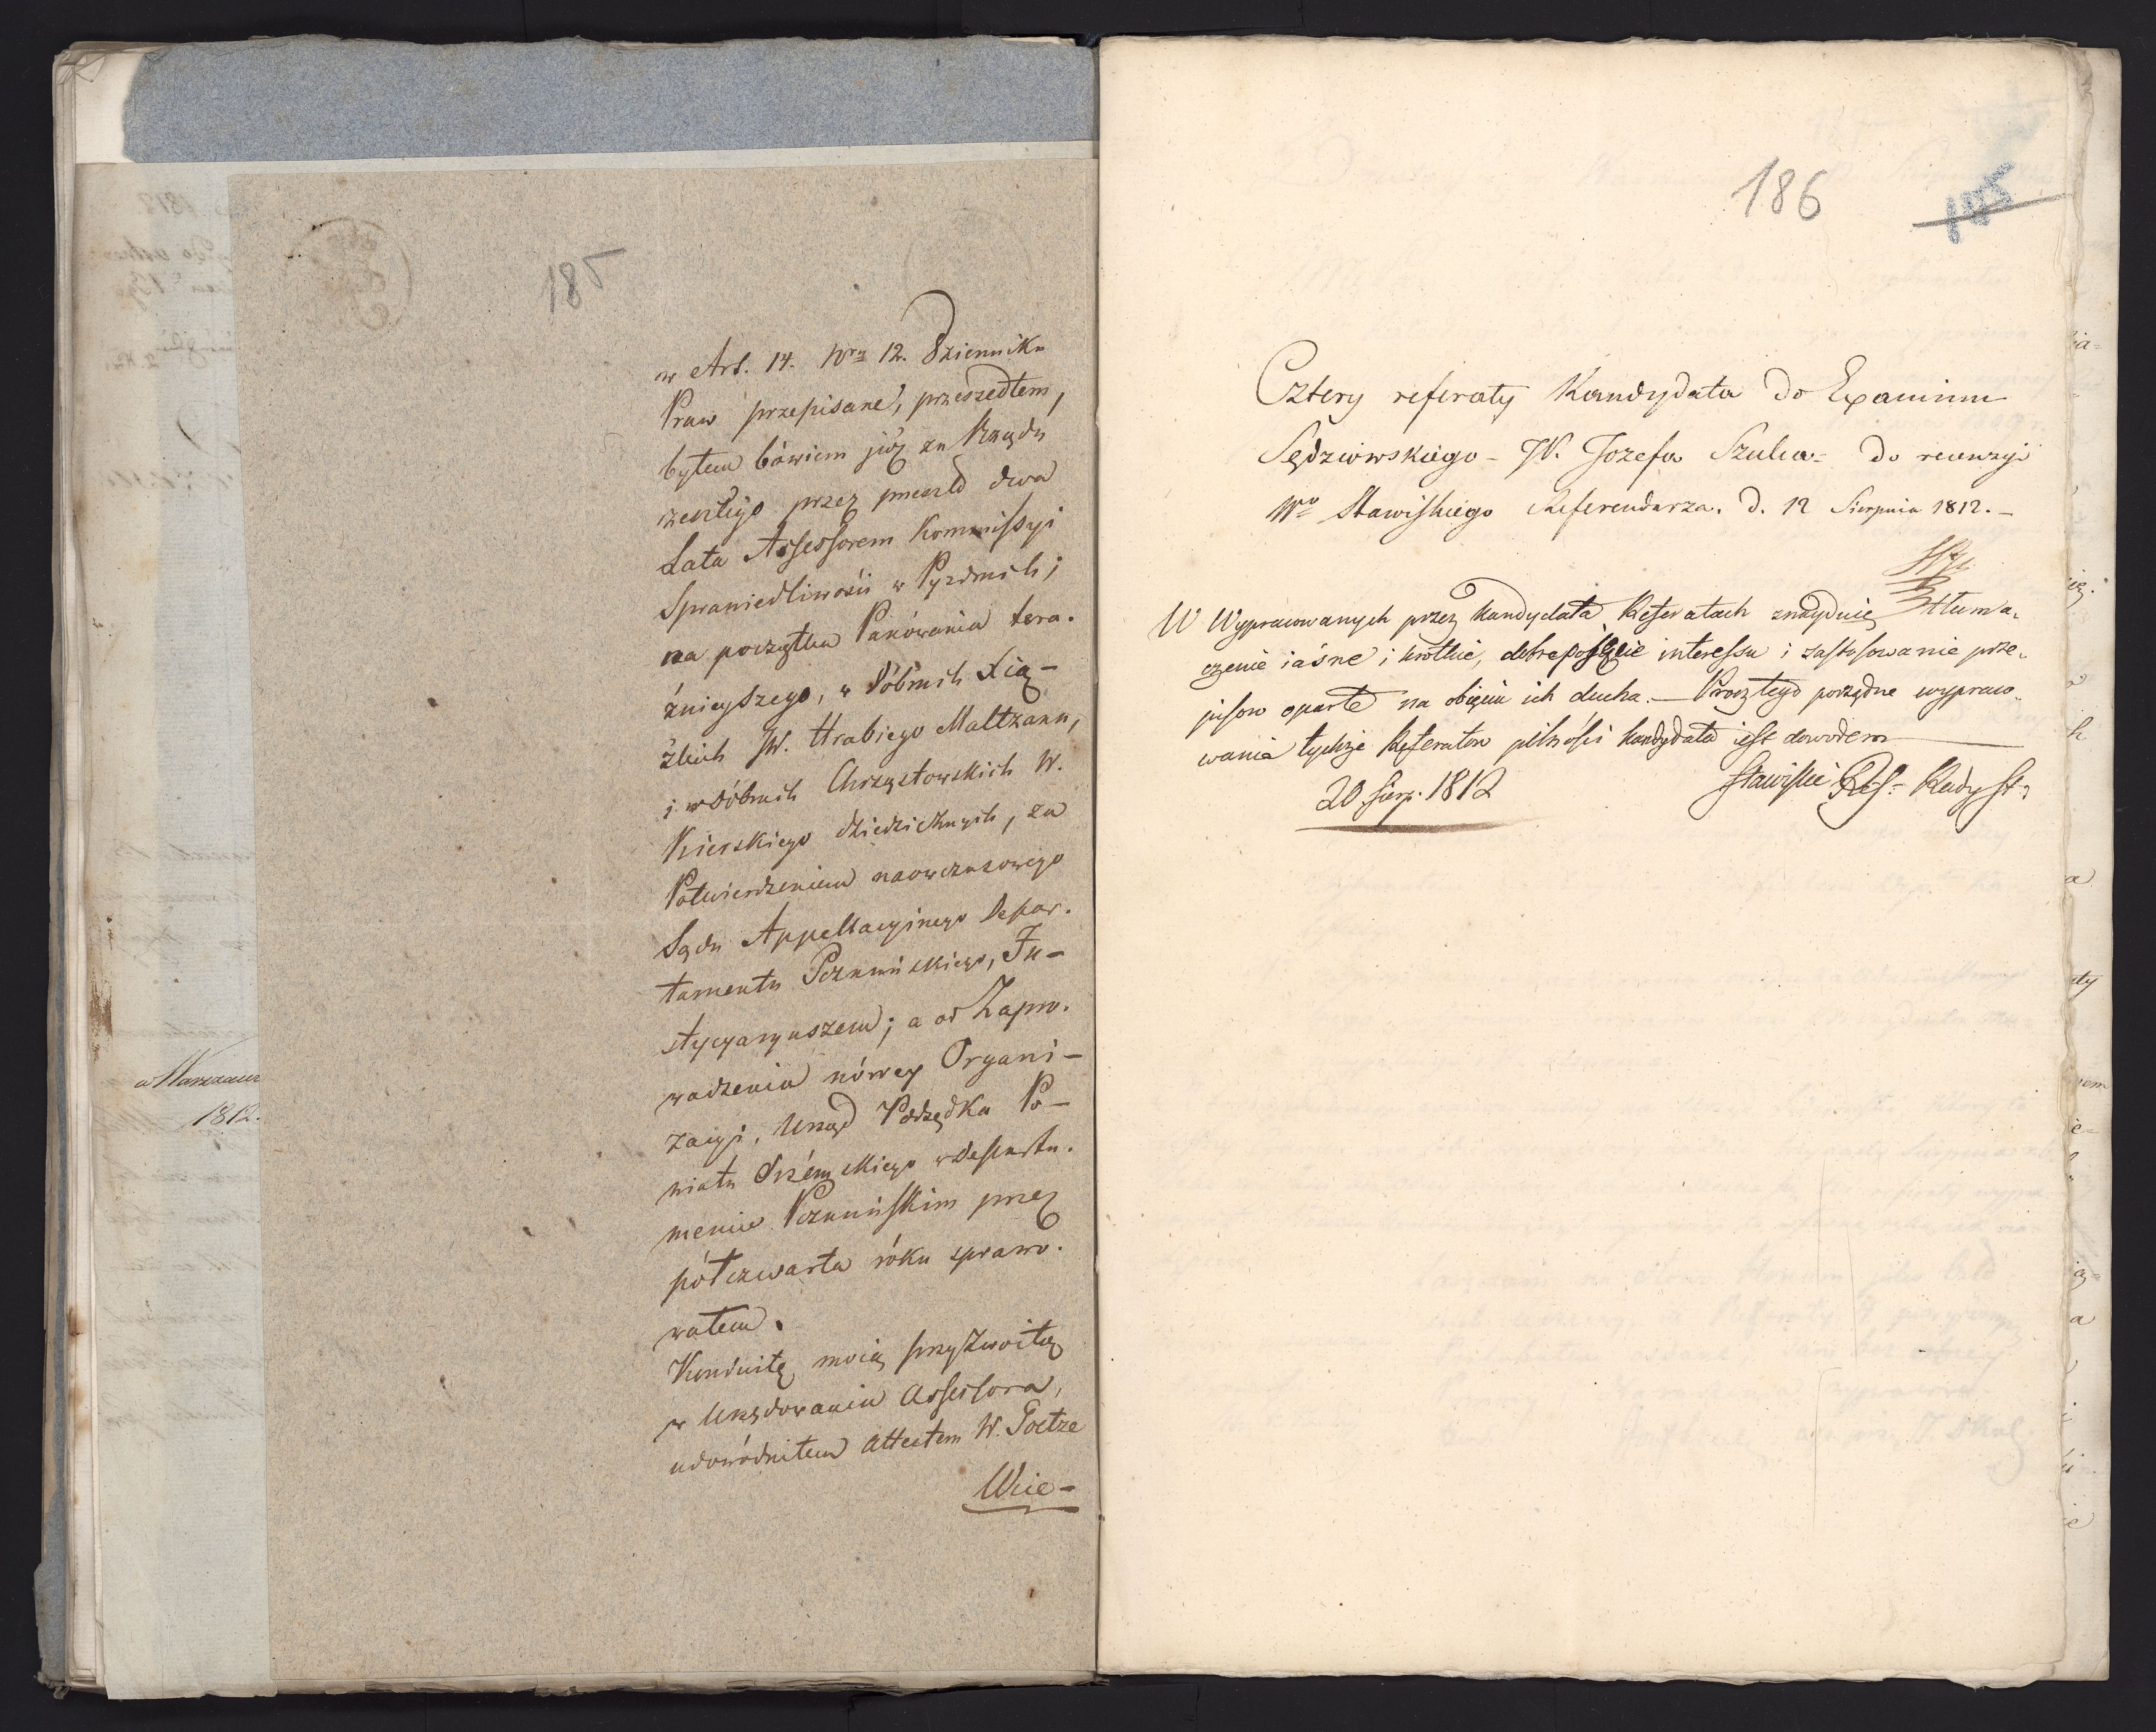 185
w Art. 14. Nrz 12. Dziennika
Praw przepisane, przeszedłem,
byłem bówiem już za Rządu
zeszłego przez przeszło dwa
Lata Assessorem Kommissyi
Sprawiedliwości w Pyzdrach;
na początku Panówania tera.
źnieyszego, w Dóbrach Xią-
żkich JW. Hrabiego Maltzann,
i w Dóbrach Chrząstowskich W.
Kierskiego dziedzicznych, za
Potwierdzeniem naowczasowego
Sądu Appellacyinego Depar.
tamentu Poznańskiego, Ju-
stycyaryuszem; a od Zapro.
wadzenia nówey Organi-
zacyi, Urząd Podsędka Po-
wiatu Szrémskiego w Departa.
mencie Poznańskim przez
pół czwarta róku sprawo.
wałem.
Konduitę moię przyzwoitą
w Urzędowaniu Assessora,
udowódniłem Attestem W. Goetze
Wice-
a Warszawie
1812.
186
185
Cztery referaty Kandydata do Examinu
Sędziowskiego - W. Jozefa Szulca - do recenzyi
Wo Stawiskiego Referendarza. d. 12 Sierpnia 1812. -
W Wypracowanych przez kandydata Referatach znayduię tłuma,
czenie iásne i krotkie, dobre poięcie interessu i zastosowanie prze,
pisow oparte na obięciu ich ducha. - Procz tego porządne wypraco,
wania tychże Referatow pilności kandydata iest dowodem
20 Sierp. 1812
Stawiski Ref. Rady St.